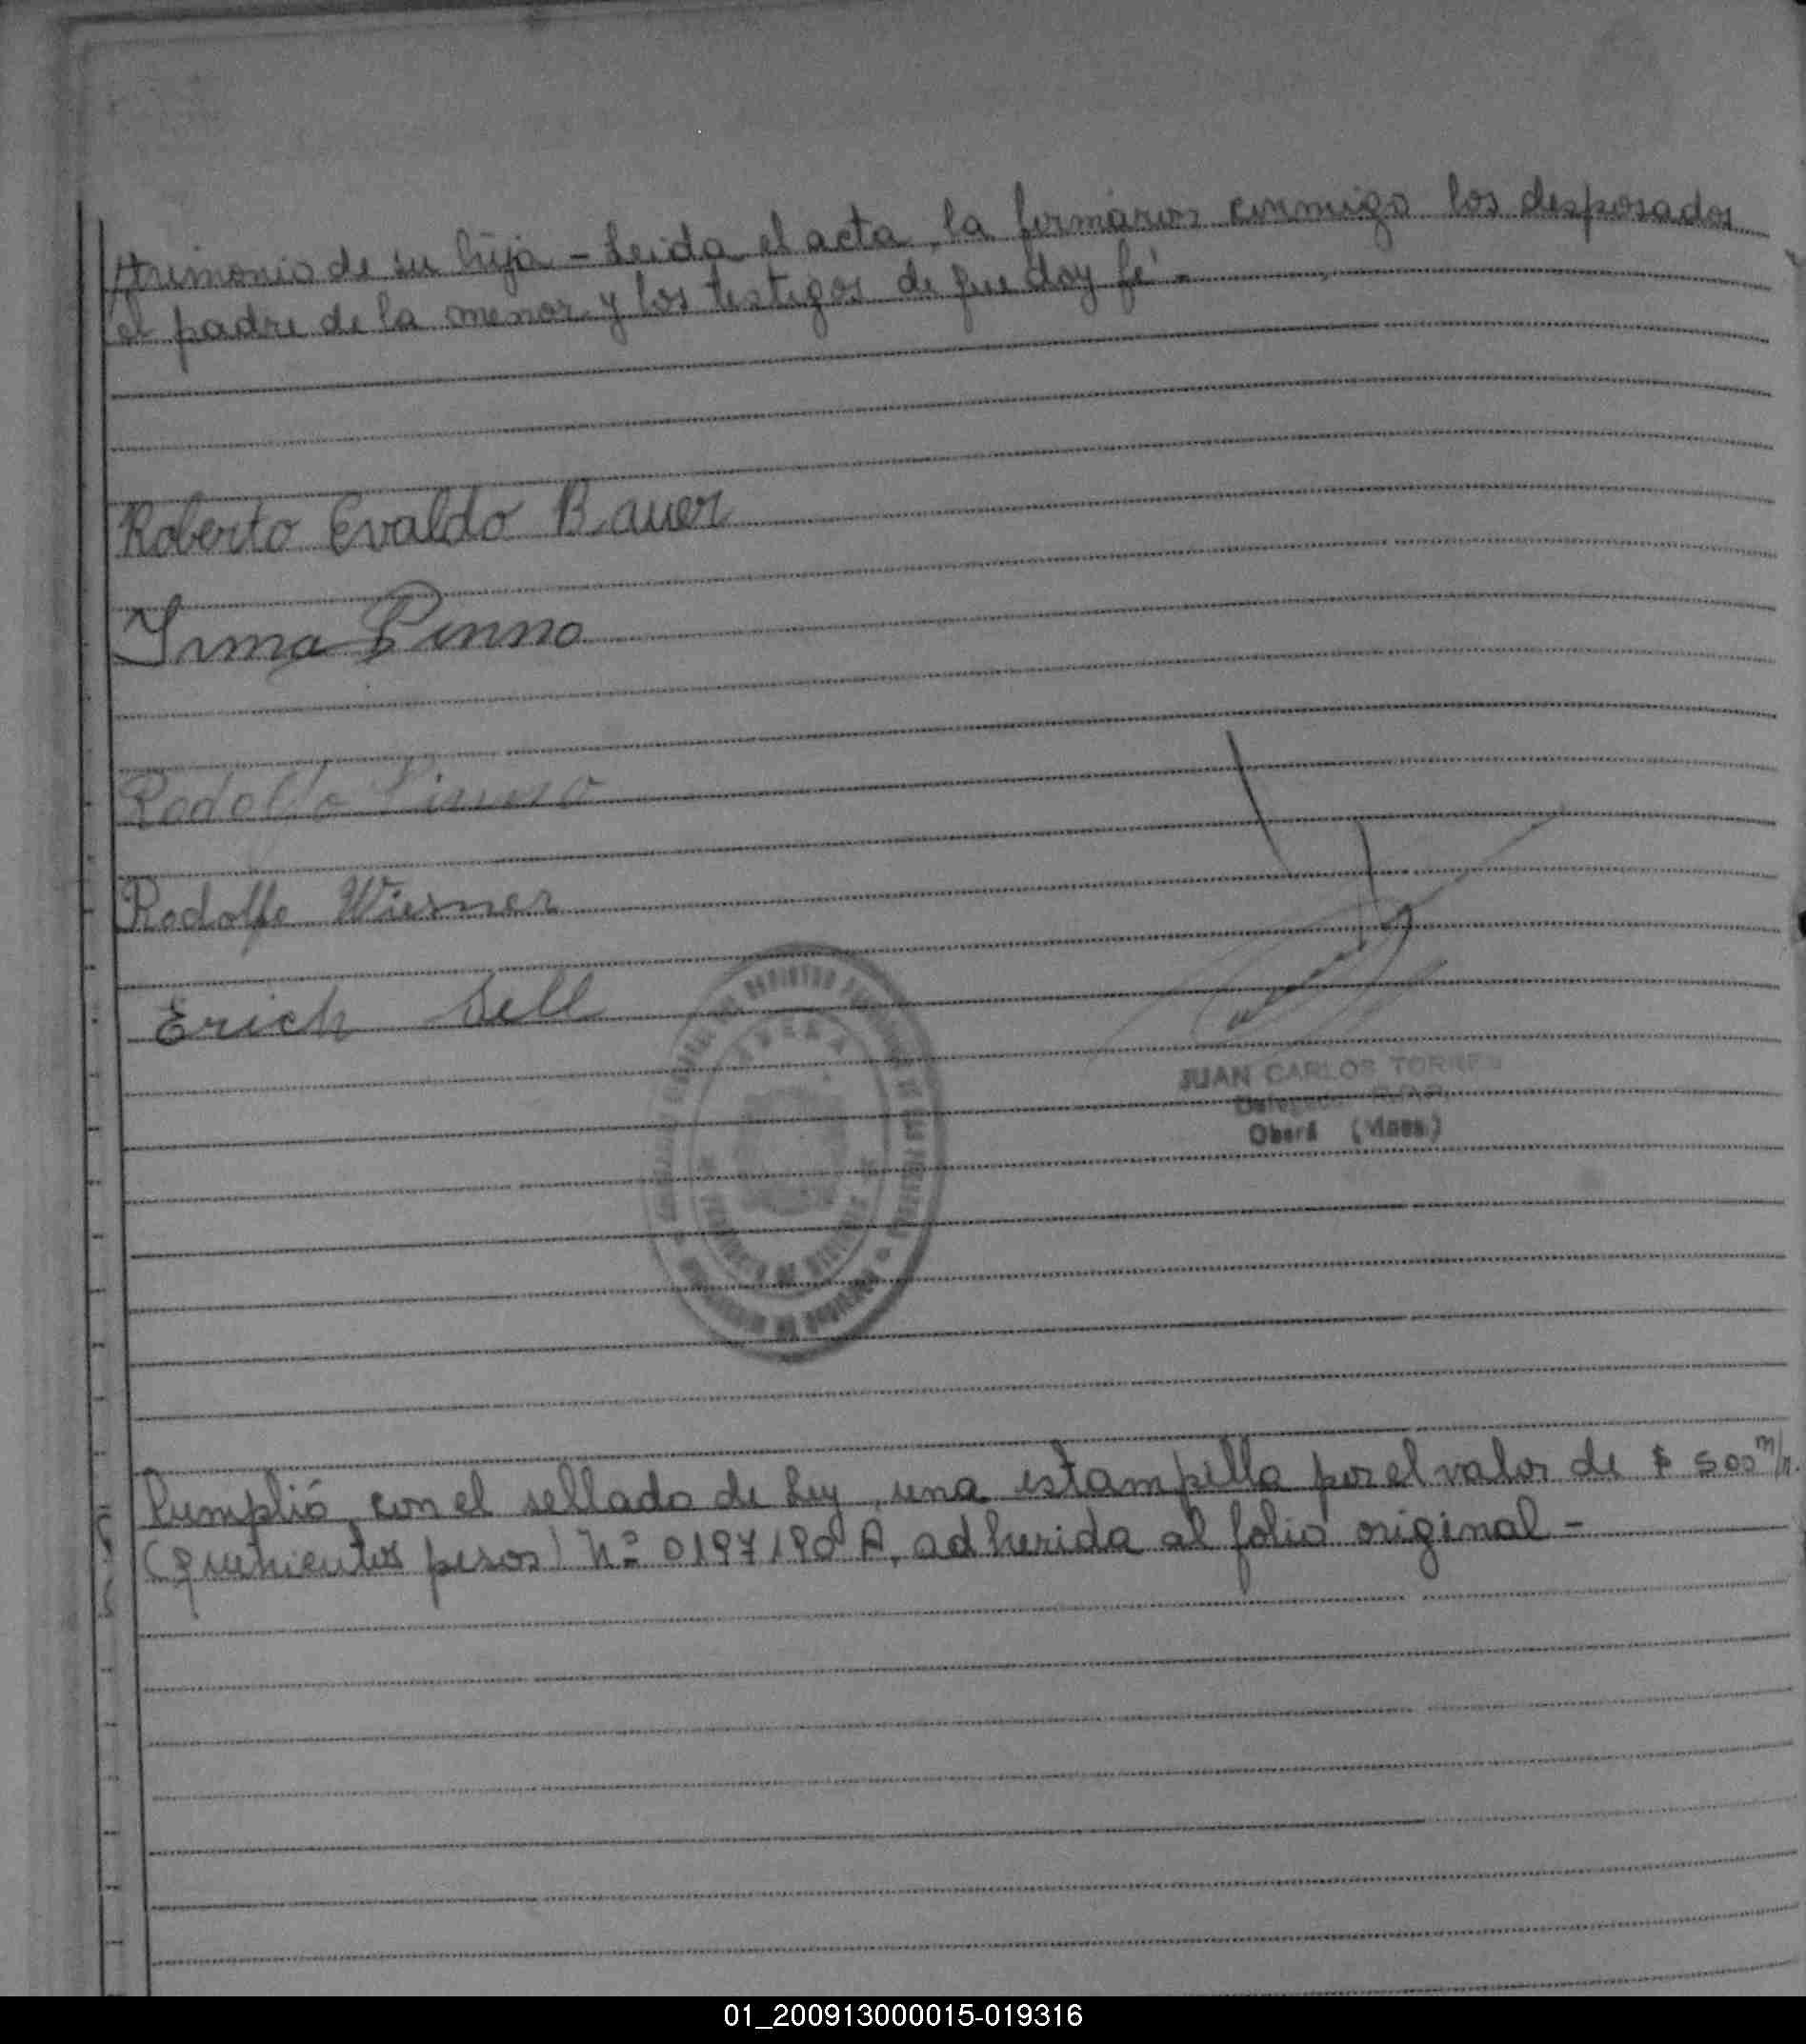 /trimonio de su hija - Leida el acta, la firmáron conmigo los desposados
el padre de la menor y los testigos de que doy fé.-
Roberto Evaldo Bauer
Irma Pinno
Rodolfo Pinno
Rodolfo Wiesner
Erich Sell
JUAN CARLOS TORRES
Delegado
Oberá (Mnes.)
PROVINCIA DE MISIONES
Cumplió con el sellado de Ley, una estampilla por el valor de $ 500 m/n.
(quinientos pesos) Nº 0197190 A, adherida al folio original -
01_200913000015-019316